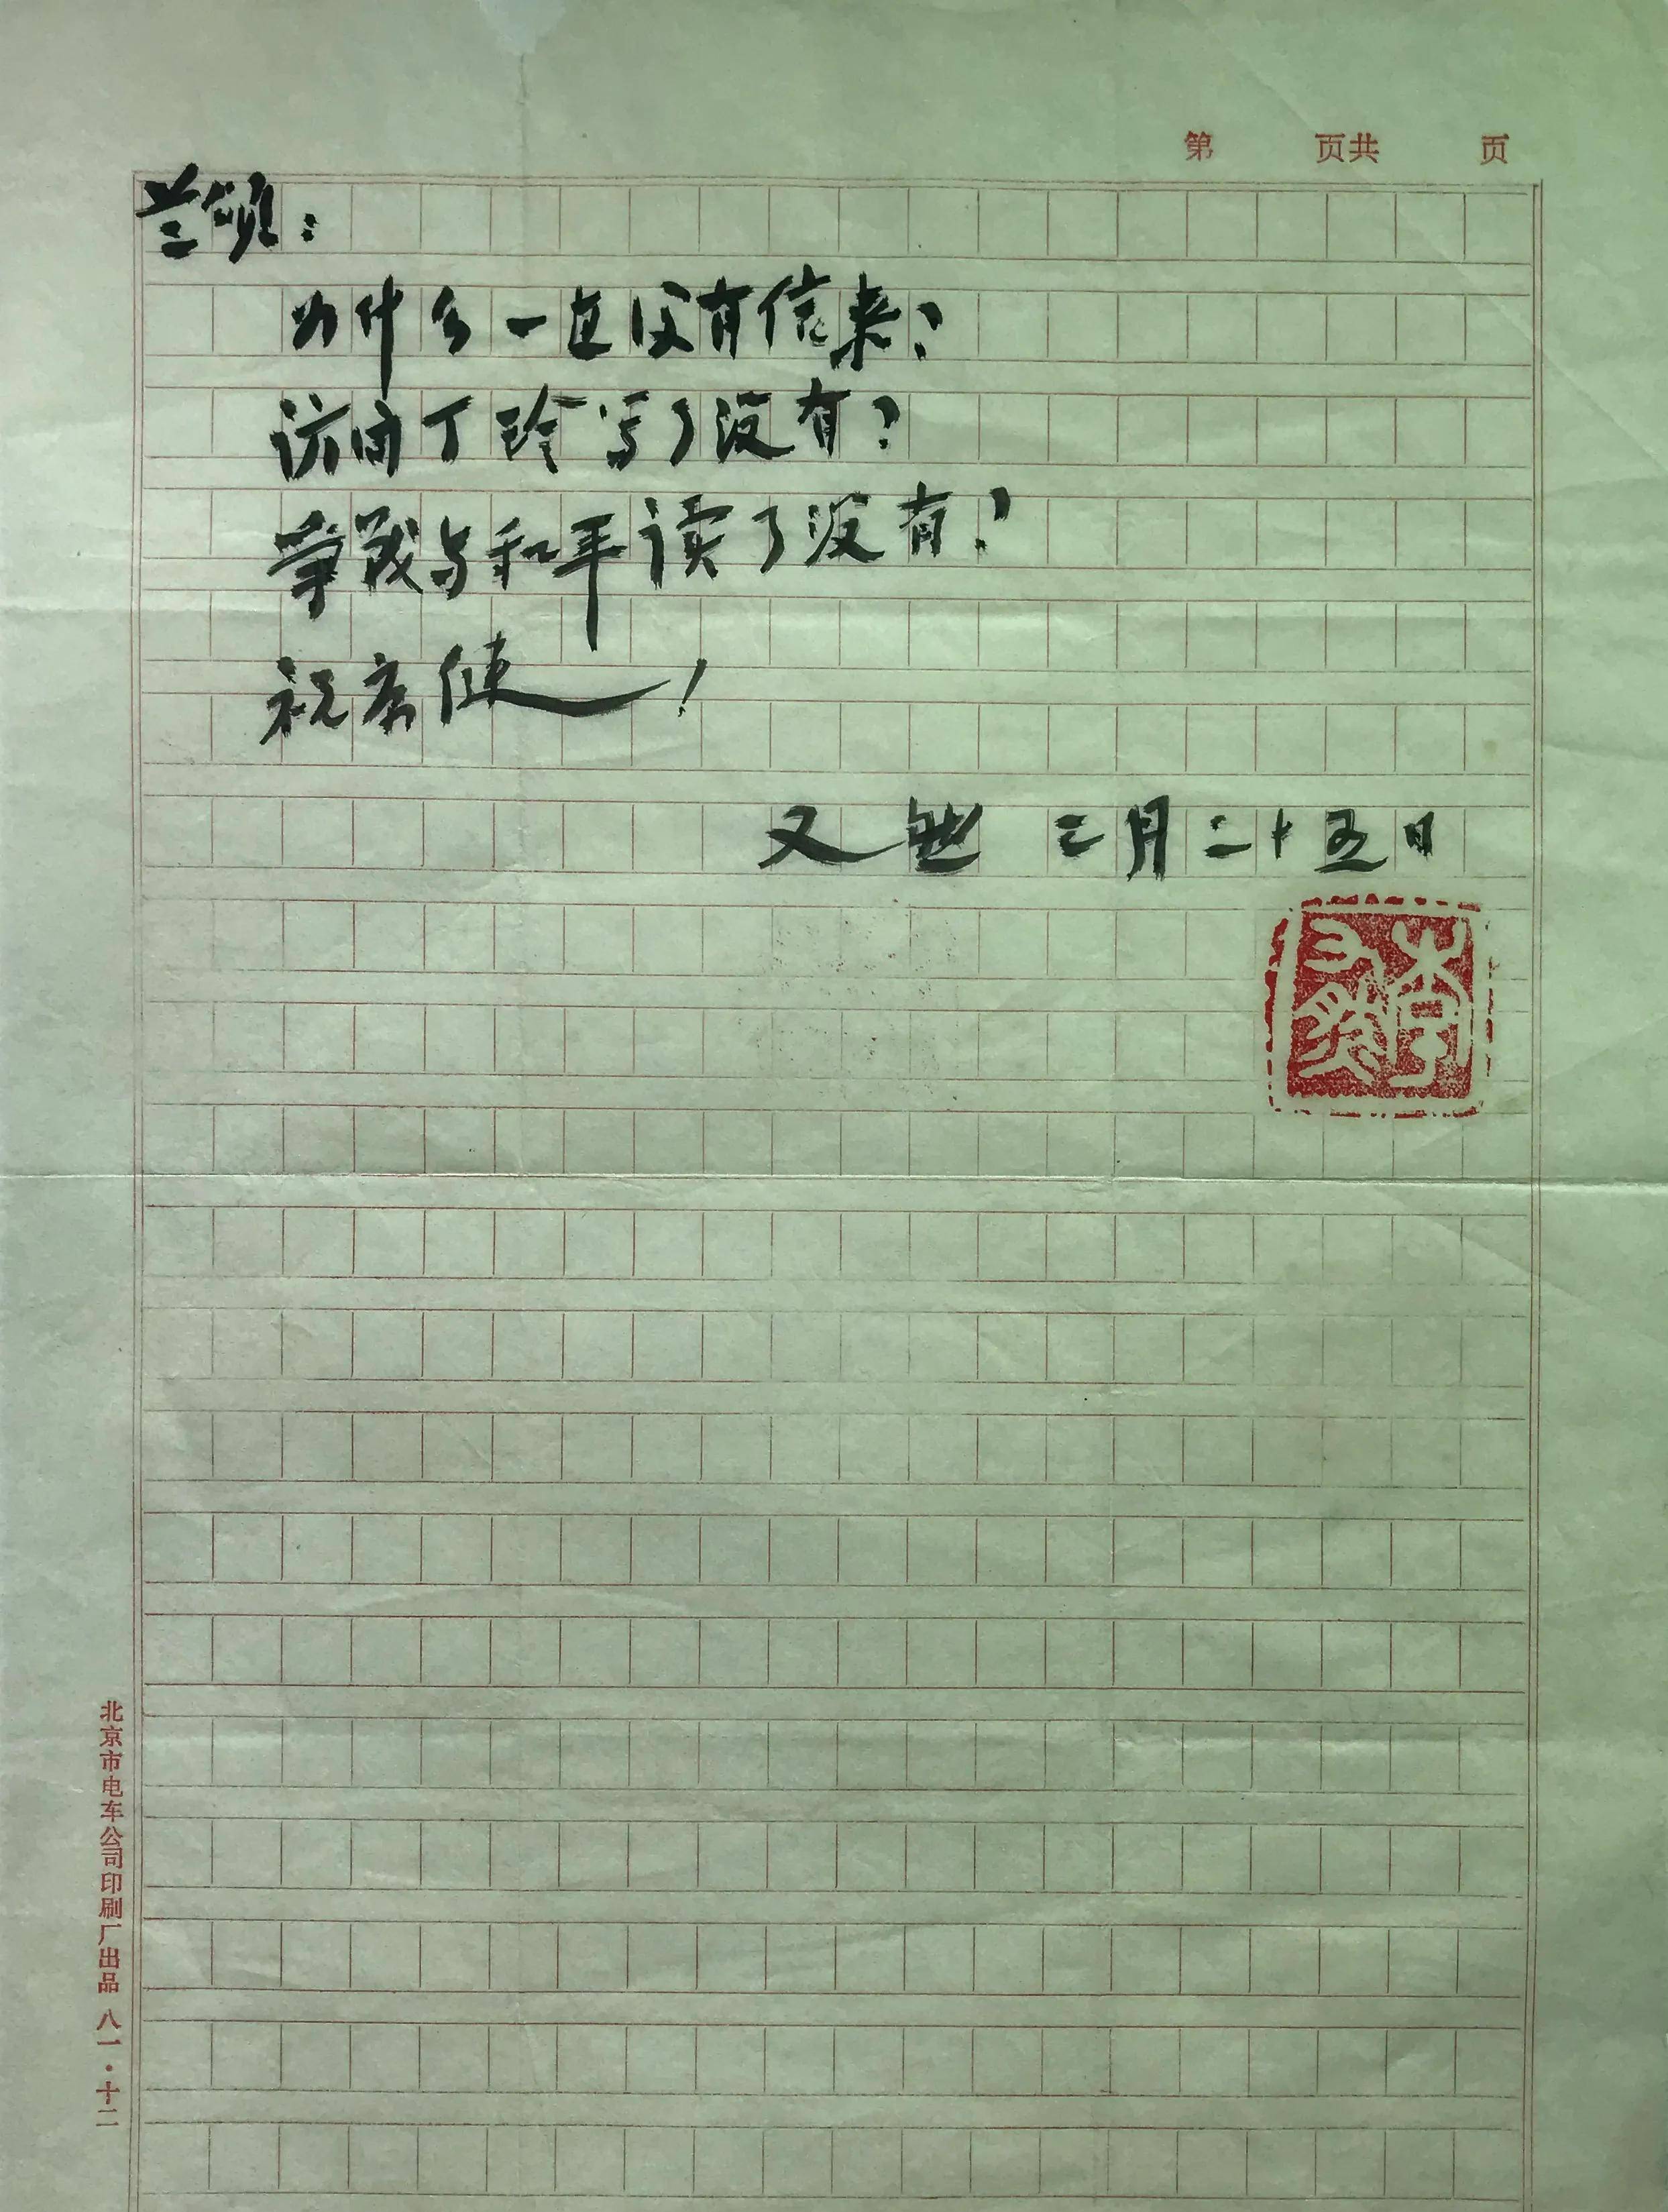 第 页共 页
兰颂：
为什么一直没有信来？
访问丁玲写了没有？
争战与和平读了没有？
祝康健！
又然 三月二十五日
李又然
北京市电车公司印刷厂出品 八一·十二